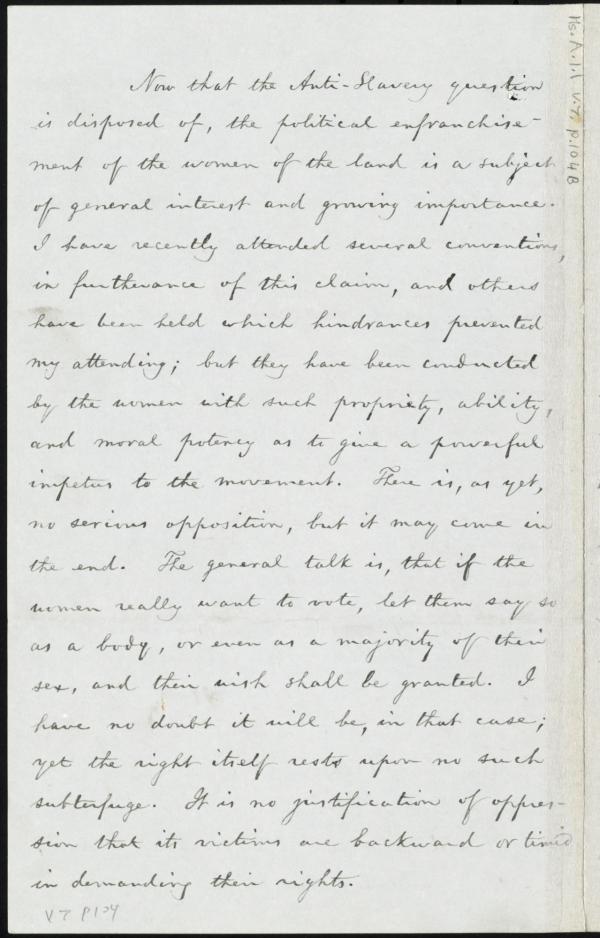 Now that the Anti-Slavery question
is disposed of, the political enfranchise-
ment of the women of the land is a subject
of general interest and growing importance.
I have recently attended several conventions,
in furtherance of this claim, and others
have been held which hindrances prevented
my attending; but they have been conducted
by the women with such propriety, ability,
and moral potency as to give a powerful
impetus to the movement. There is, as yet,
no serious opposition, but it may come in
the end. The general talk is, that if the
women really want to vote, let them say so
as a body, or even as a majority of their
sex, and their wish shall be granted. I
have no doubt it will be, in that case;
yet the right itself rests upon no such
subterfuge. It is no justification of oppres-
sion that its victims are backward or timid
in demanding their rights.
V7 P104
Ms. A. 1.1 V.7, p.104B